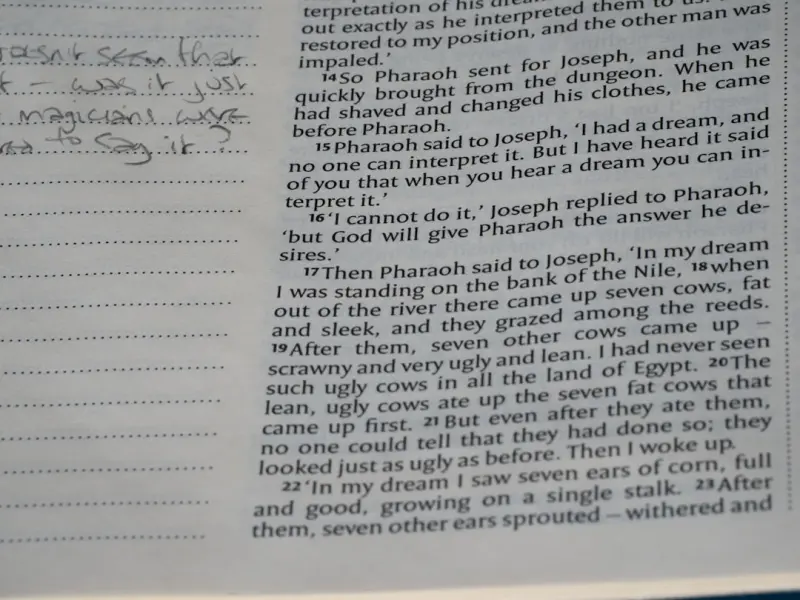 doesn't seem that
– was it just
magicians were
to say it?
terpretation of his dream
out exactly as he interpreted them to us: I
restored to my position, and the other man was
impaled.’
14So Pharaoh sent for Joseph, and he was
quickly brought from the dungeon. When he
had shaved and changed his clothes, he came
before Pharaoh.
15Pharaoh said to Joseph, ‘I had a dream, and
no one can interpret it. But I have heard it said
of you that when you hear a dream you can in-
terpret it.’
16‘I cannot do it,’ Joseph replied to Pharaoh,
‘but God will give Pharaoh the answer he de-
sires.’
17Then Pharaoh said to Joseph, ‘In my dream
I was standing on the bank of the Nile, 18when
out of the river there came up seven cows, fat
and sleek, and they grazed among the reeds.
19After them, seven other cows came up –
scrawny and very ugly and lean. I had never seen
such ugly cows in all the land of Egypt. 20The
lean, ugly cows ate up the seven fat cows that
came up first. 21But even after they ate them,
no one could tell that they had done so; they
looked just as ugly as before. Then I woke up.
22‘In my dream I saw seven ears of corn, full
and good, growing on a single stalk. 23After
them, seven other ears sprouted – withered and